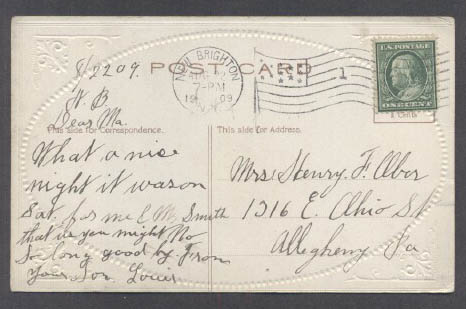 8/22 09.
N. B.
Dear Ma.
POST CARD
NEW BRIGHTON
7-PM
1909
N.Y.
1
U.S. POSTAGE
ONE CENT
This side for Correspondence.
This side for Address.
What a nice
night it was on
Sat. for me & M. Smith
that is you might No
So long good by From
Your Son. Louis
Mrs Henry. F. Aber
1316 E. Ohio St
Allegheny Pa